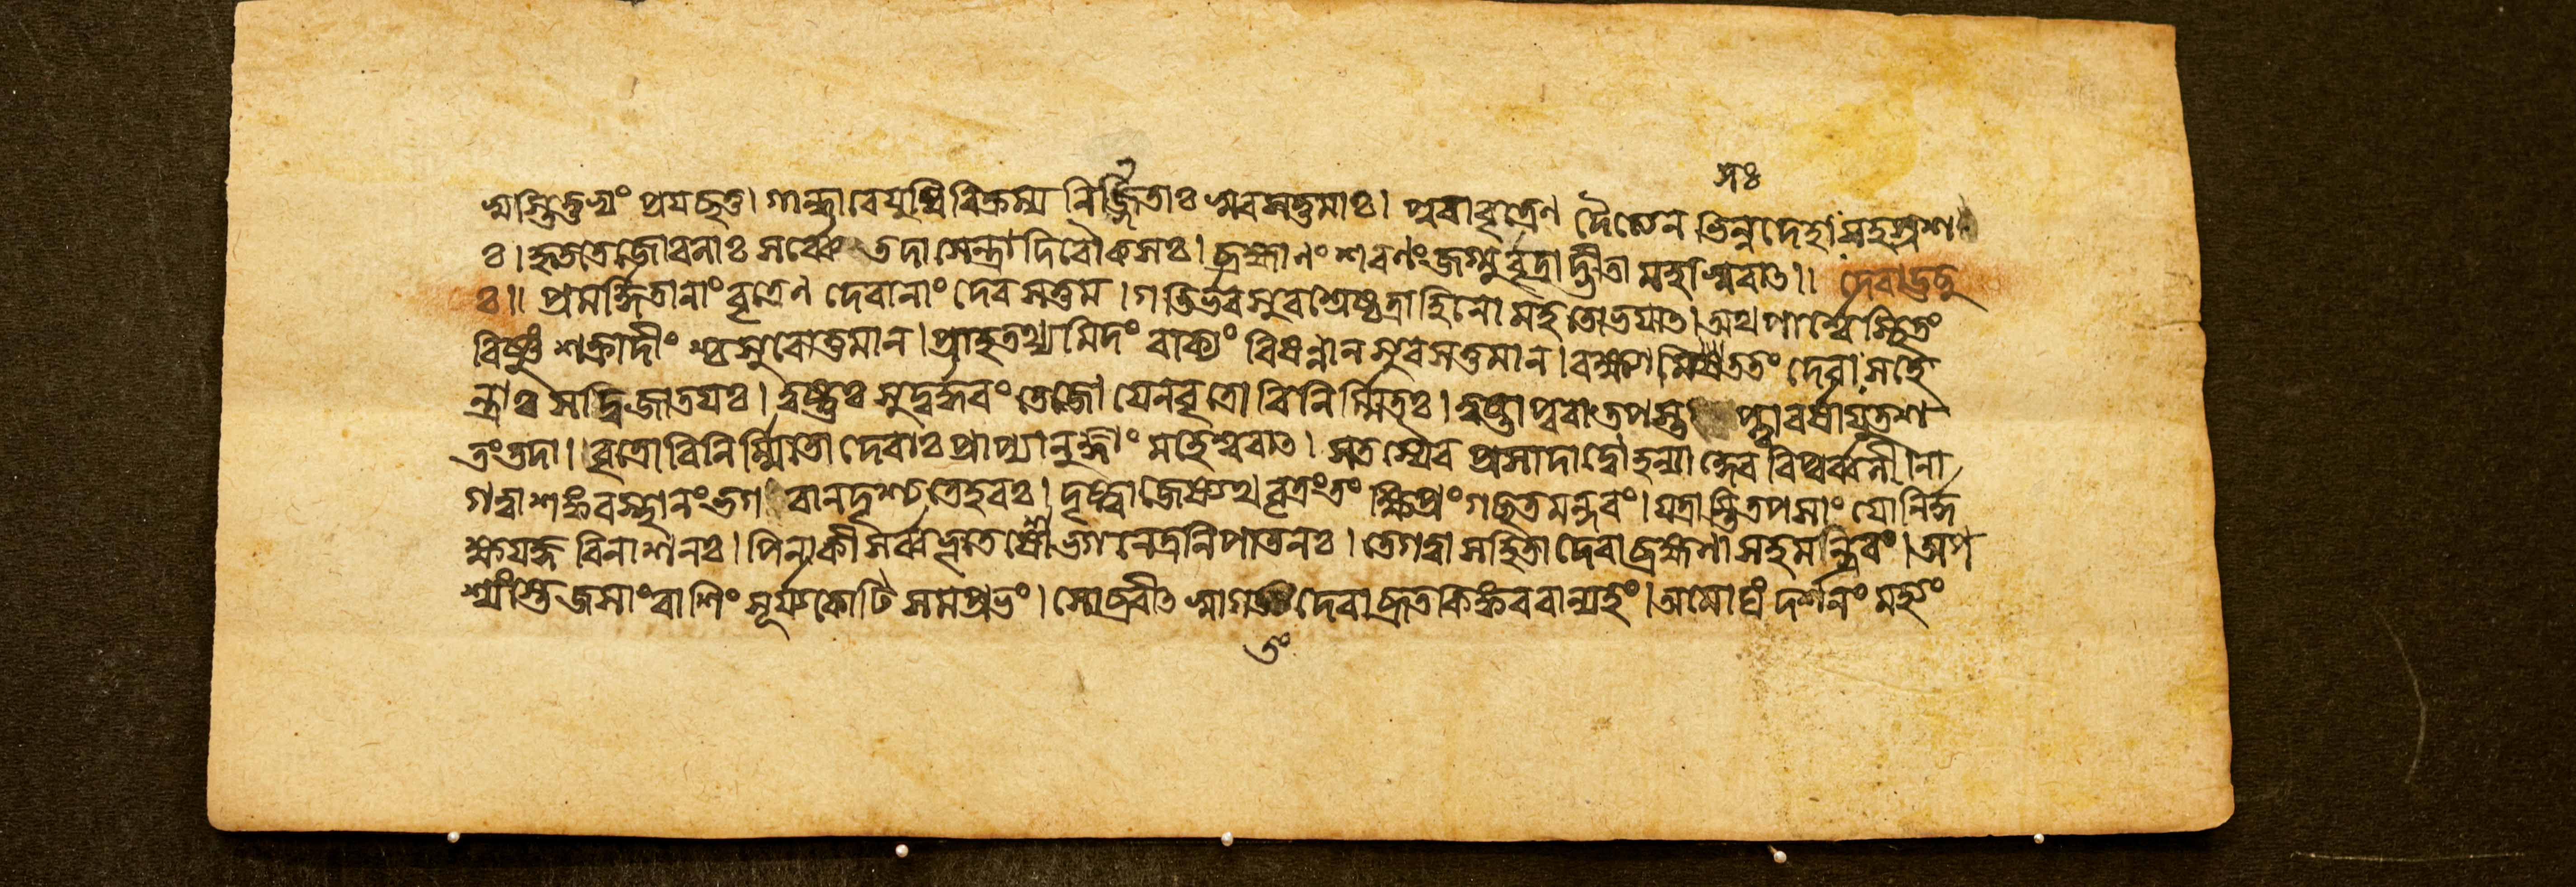 স্বস্তি তুভ্যং প্রযচ্ছতু। গান্ধারে যুধি বিক্রম্য নির্জ্জিতাঃ সুরসত্তমাঃ। পুরা বৃত্রেণ দৈত্যেন ভিন্নদেহাঃ সহস্রশ
সঃ
ঃ। হৃততেজোবলাঃ সর্ব্বে তদা সেন্দ্রা দিবৌকসঃ। ব্রহ্মাণং শরণং জগ্মুর্বৃত্রাদ্ভীতা মহাসুরাৎ॥ দেবা ঊচু
ঃ॥ প্রমর্দ্দিতানাং বৃত্রেণ দেবানাং দেবসত্তম। গতির্ভব সুরশ্রেষ্ঠ ত্রাহি নো মহতো ভযাৎ। অথ পার্শ্বে স্থিতং
বিষ্ণুং শক্রাদীংশ্চ সুরোত্তমান। প্রাহ তথ্যমিদং বাক্যং বিষণ্নান সুরসত্তমান। রক্ষ্যা মে সততং দেবাঃ সহে
ন্দ্রাঃ সদ্বিজাতযঃ। ত্বষ্টুঃ সুদুর্দ্ধরং তেজো যেন বৃত্রো বিনির্ম্মিতঃ। ত্বষ্ট্রা পুরা তপস্তপ্ত্বা বর্ষাযুতশ
তং তদা। বৃত্রো বিনির্ম্মিতো দেবাঃ প্রাপ্যানুজ্ঞাং মহেশ্বরাৎ। স তস্যৈব প্রসাদাদ্বো হন্যাদ্দেব রিপুর্ব্বলী। না
গত্বা শঙ্করস্থানং ভগবান দৃশ্যতে হরঃ। দৃষ্ট্বা জেষ্যথ বৃত্রং তং ক্ষিপ্রং গচ্ছত মন্দরং। যত্রাস্তে তপসাং যোনির্দ্দ
ক্ষযজ্ঞবিনাশনঃ। পিনাকী সর্ব্বভূতেশো ভগনেত্রনিপাতনঃ। তে গত্বা সহিতা দেবা ব্রহ্মণা সহ মন্দরং। অপ
শ্যংস্তেজসাং রাশিং সূর্য্যকোটিসমপ্রভং। সোব্রবীৎ স্বাগতং দেবা ব্রূত কিং করবাণ্যহং। অমোঘং দর্শনং মহ্যং
তং